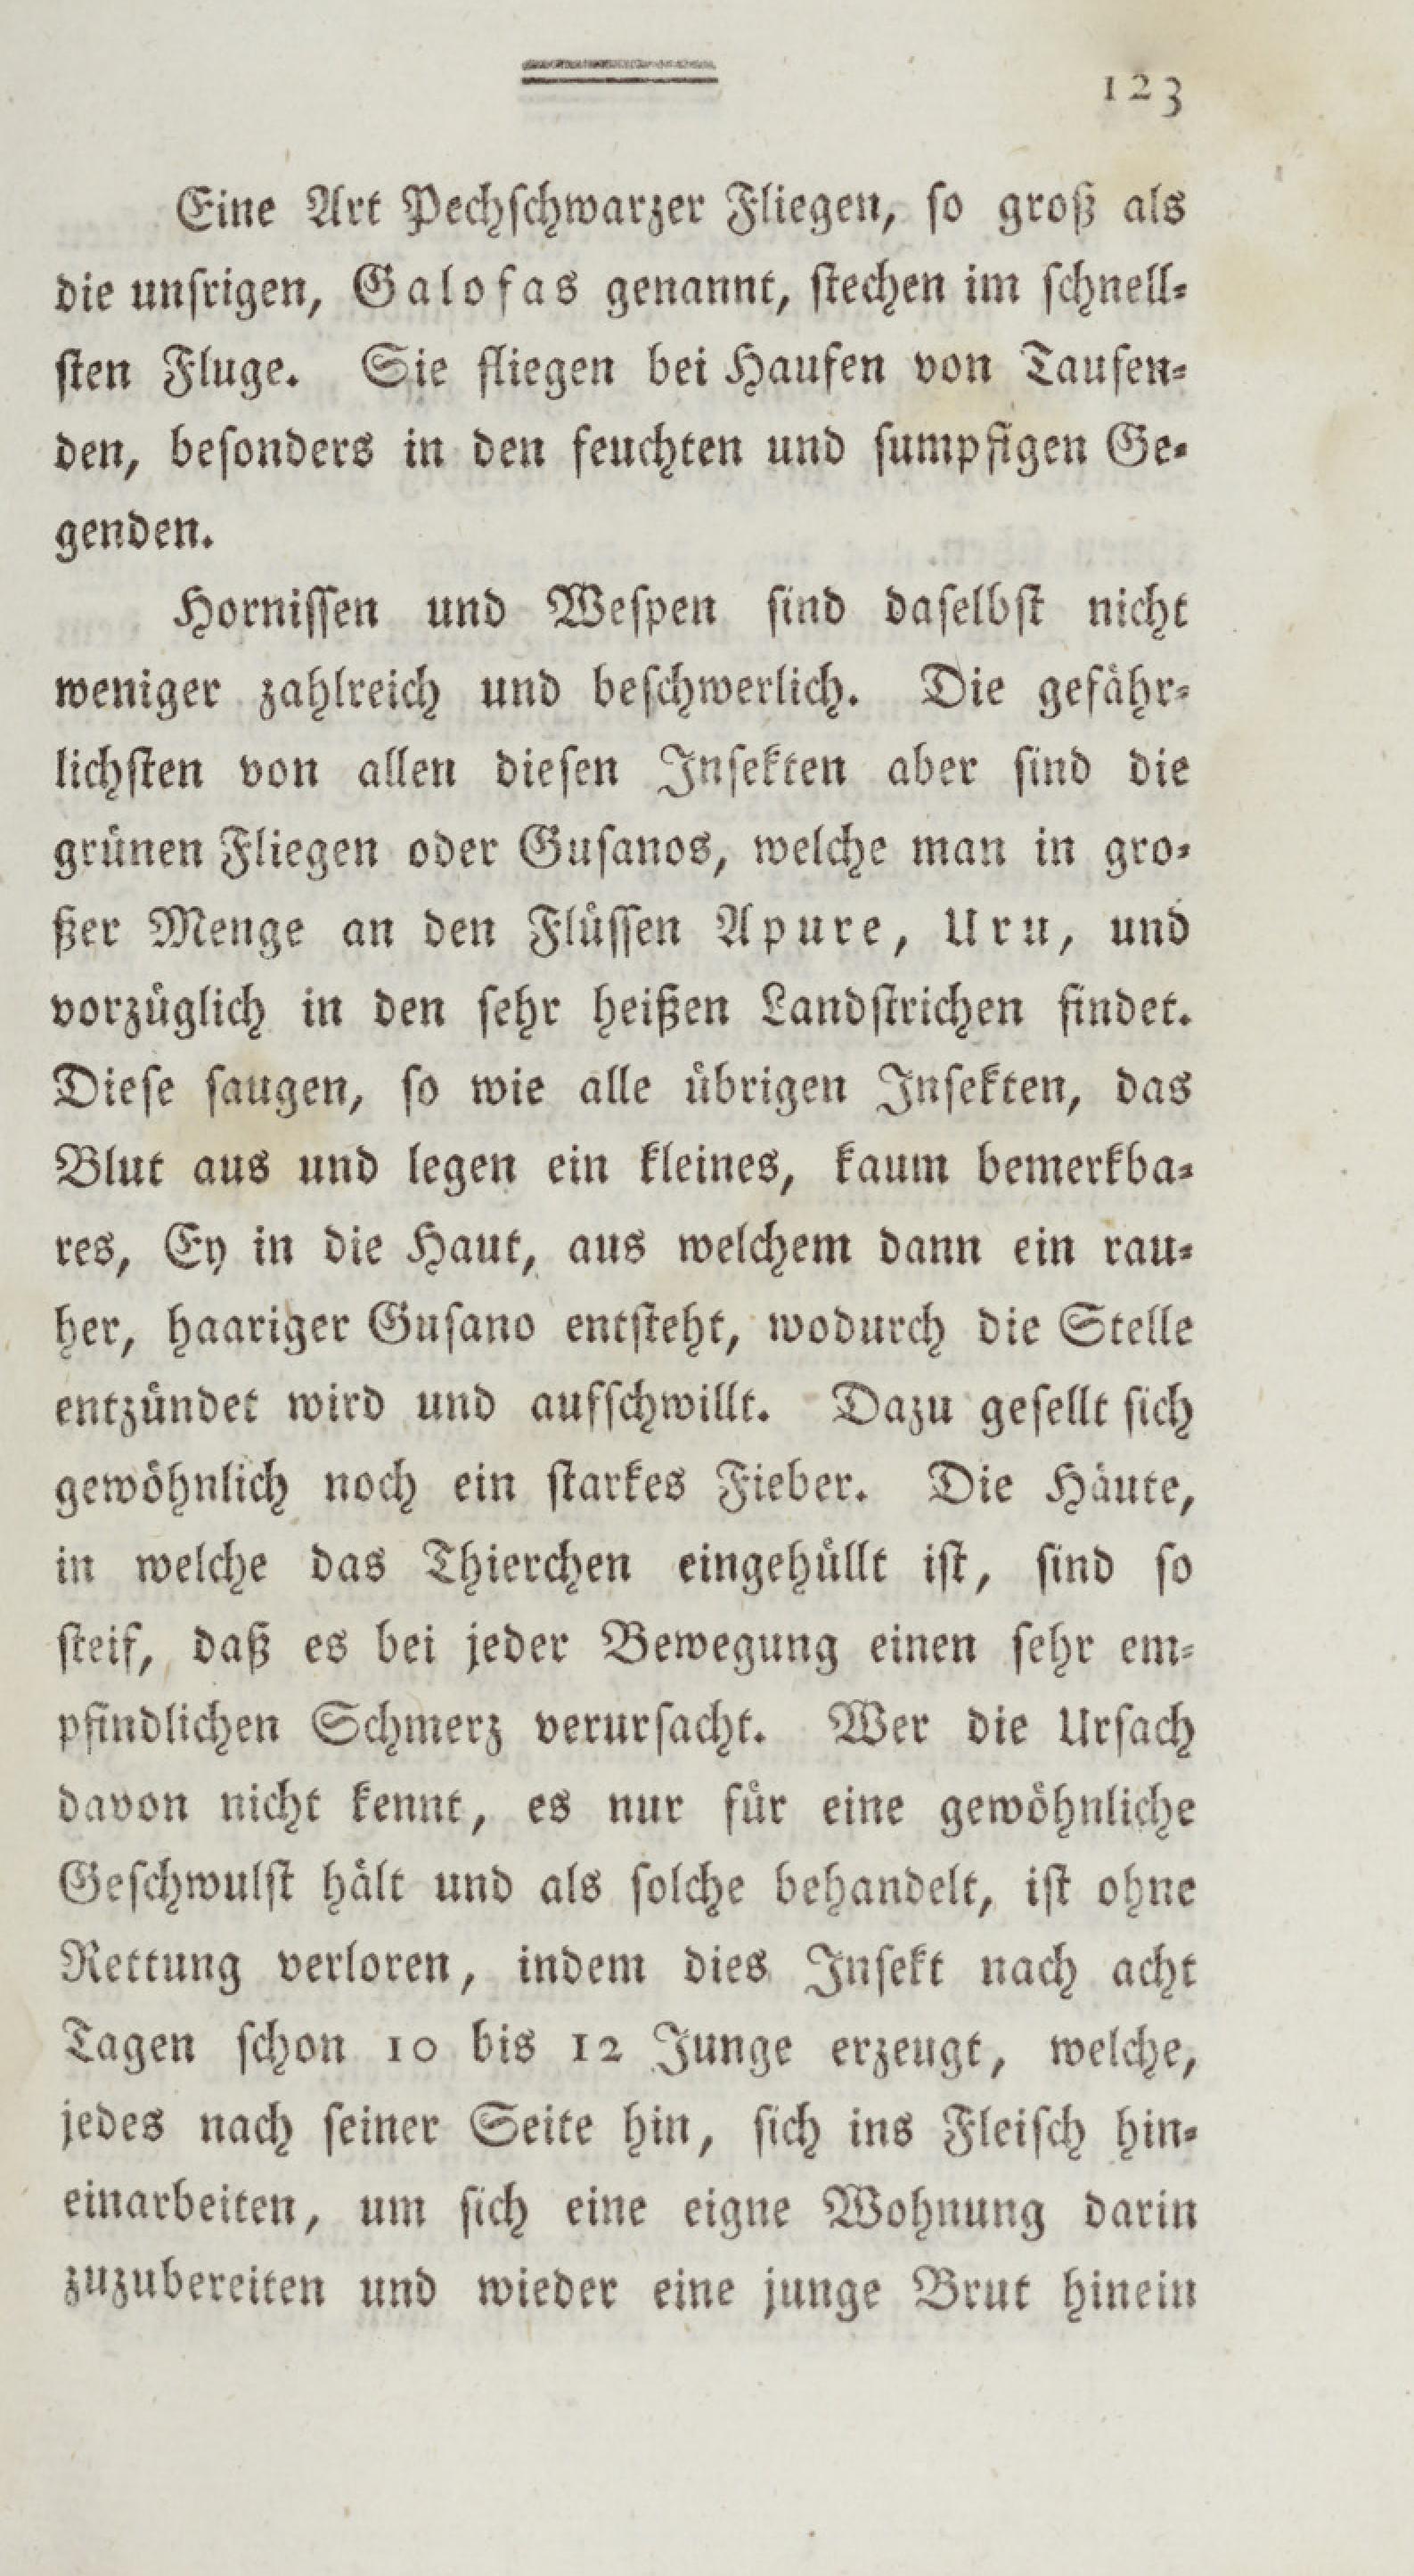 123
Eine Art Pechschwarzer Fliegen, so groß als
die unsrigen, Galofas genannt, stechen im schnell-
sten Fluge. Sie fliegen bei Haufen von Tausen-
den, besonders in den feuchten und sumpfigen Ge-
genden.
Hornissen und Wespen sind daselbst nicht
weniger zahlreich und beschwerlich. Die gefähr-
lichsten von allen diesen Insekten aber sind die
grünen Fliegen oder Gusanos, welche man in gro-
ßer Menge an den Flüssen Apure, Uru, und
vorzüglich in den sehr heißen Landstrichen findet.
Diese saugen, so wie alle übrigen Insekten, das
Blut aus und legen ein kleines, kaum bemerkba-
res, Ey in die Haut, aus welchem dann ein rau-
her, haariger Gusano entsteht, wodurch die Stelle
entzündet wird und aufschwillt. Dazu gesellt sich
gewöhnlich noch ein starkes Fieber. Die Häute,
in welche das Thierchen eingehüllt ist, sind so
steif, daß es bei jeder Bewegung einen sehr em-
pfindlichen Schmerz verursacht. Wer die Ursach
davon nicht kennt, es nur für eine gewöhnliche
Geschwulst hält und als solche behandelt, ist ohne
Rettung verloren, indem dies Insekt nach acht
Tagen schon 10 bis 12 Junge erzeugt, welche,
jedes nach seiner Seite hin, sich ins Fleisch hin-
einarbeiten, um sich eine eigne Wohnung darin
zuzubereiten und wieder eine junge Brut hinein